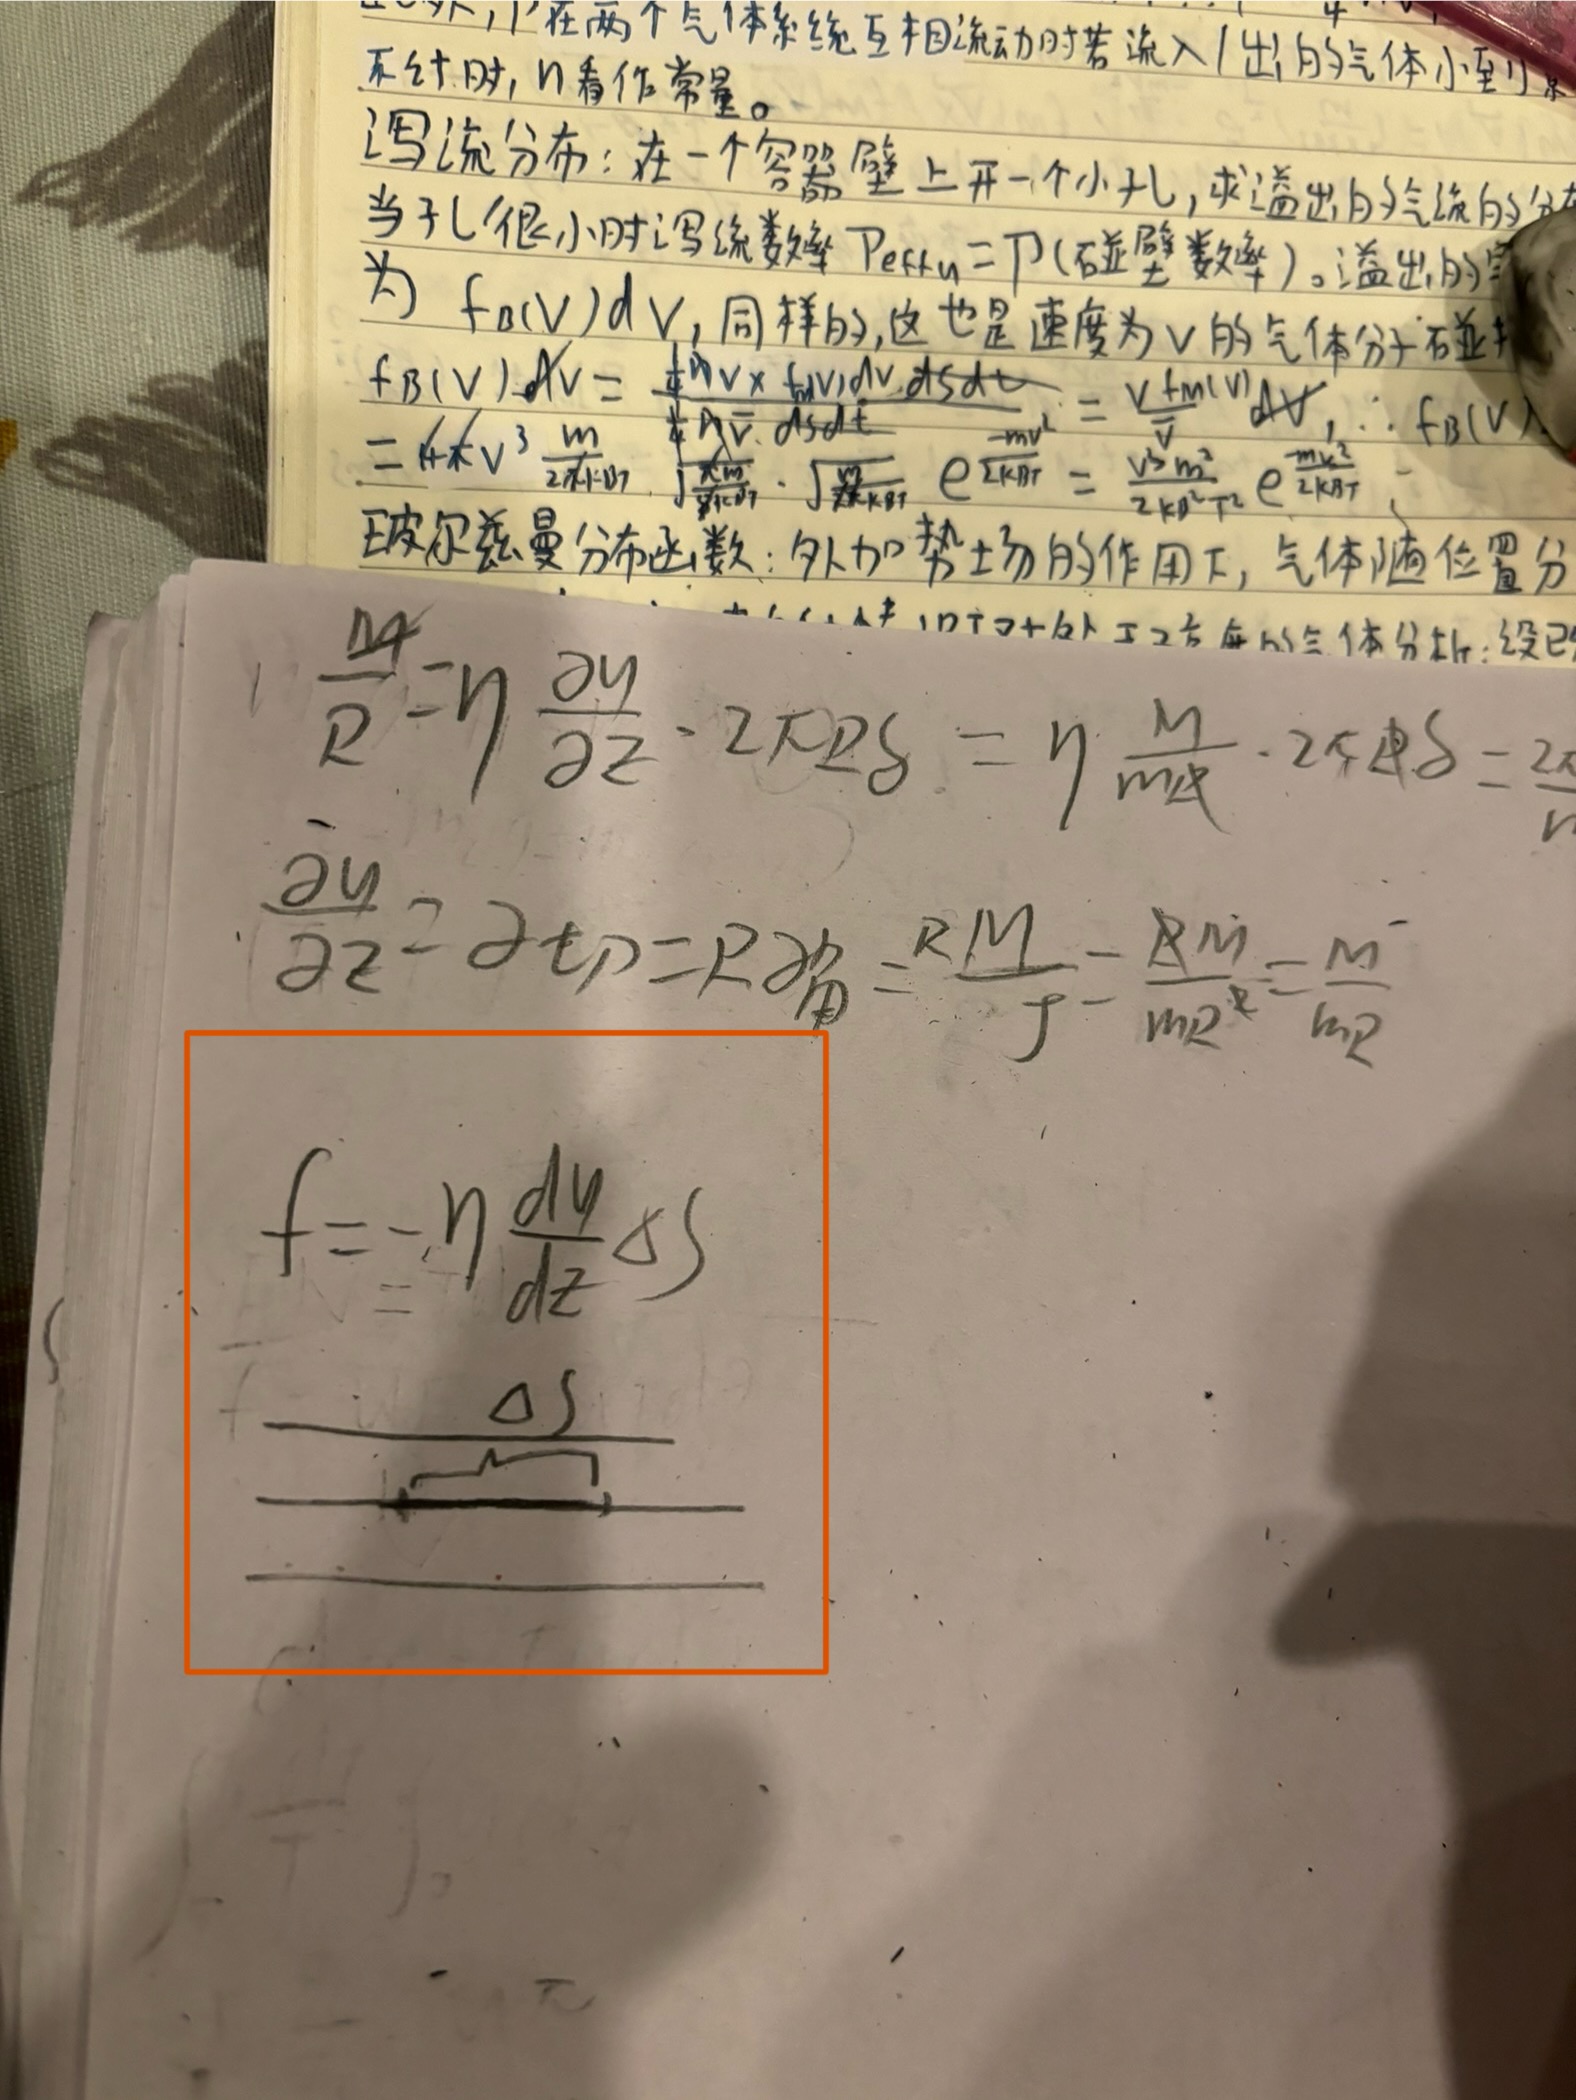 在两个气体系统互相流动时若流入/出的气体小到
不计时,n看作常量。
泻流分布:在一个容器壁上开一个小孔,求溢出的气流的分布
当孔很小时泻流数率 Γeffu=Γ(碰壁数率)。溢出的
为 fB(V)dV,同样的,这也是速度为V的气体分子碰
fB(V)dV = ¼nv×fM(V)dv dsdt / ¼nv̄ dsdt = v fM(V)/v̄ dV, ∴ fB(V)
= 4πv³ m/2πkBT √(πm/8kBT) · √(m/2πkBT) e^(-mv²/2kBT) = v³m²/2kB²T² e^(-mv²/2kBT)
玻尔兹曼分布函数:外加势场的作用下,气体随位置分
M/R = η ∂u/∂z · 2πRδ = η M/mR · 2πRδ = 2π
∂u/∂z = ∂tv = R∂ = RM/J = RM/mR² = M/mR
f = -η du/dz ΔS
ΔS